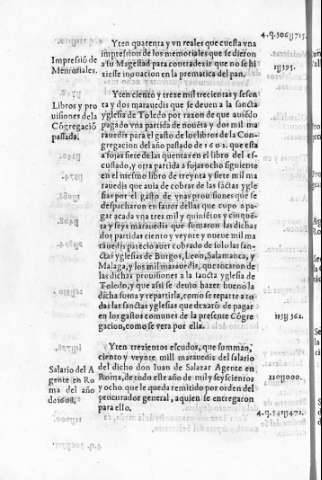 4.q.306||715.
Yten quarenta y vn reales que cuesta vna
impression de los memoriales que se dieron
a su Magestad para contradezir que no se hi
ziesse inouacion en la prematica del pan.
Impressiõ de
Memoriales.
Yten ciento y treze mil trecientas y sesen
ta y dos marauedis que se deuen a la sancta
yglesia de Toledo por razon de que auiẽdo
pagado vna partida de nouẽta y dos mil ma
rauedis para el gasto de los libros de la Con-
gregacion del año passado de
a fojas siete de las quentas en el libro del es-
cusado, y otra partida a fojas ocho siguiente
en el mesmo libro de treynta y siete mil ma
rauedis que auia de cobrar de las sãctas ygle
sias por el gasto de vnas prouisiones que se
despacharon en fauor dellas que cupo a pa-
gar a cada vna tres mil y quiniẽtos y cinquẽ-
ta y seys marauedis que sumaron las dichas
dos partidas ciento y veynte y nueue mil ma
rauedis parecio auer cobrado de solo las san-
ctas yglesias de Burgos, Leon, Salamanca, y
Malaga, y los mil marauedis, que tocaron de
las dichas prouisiones a la sancta yglesia de
Toledo, y que assi se deuio hazer bueno la
dicha suma y repartirla, como se reparte a to
das las sanctas yglesias que dexarõ de pagar
en los gastos comunes de la presente Cõgre
gacion, como se vera por ella.
Libros y pro
uisiones de la
Cõgregaciõ
passada.
113||362.
Yten trezientos escudos, que summan,
ciento y veynte mill marauedis del salario
del dicho don Iuan de Salazar Agente en
Roma, de todo este año de mil y seyscientos
y ocho que le queda remitido por orden del
procurador general, a quien se entregaron
para ello.
Salario del A
gente en Ro
ma del año
de 1608.
120||000.